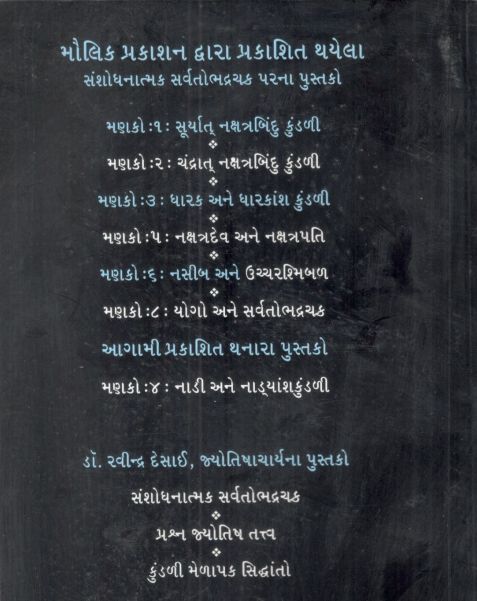 મૌલિક પ્રકાશન દ્વારા પ્રકાશિત થયેલા
સંશોધનાત્મક સર્વતોભદ્રચક્ર પરના પુસ્તકો
મણકો :૧ : સૂર્યાત્ નક્ષત્રબિંદુ કુંડળી
મણકો :૨ : ચંદ્રાત્ નક્ષત્રબિંદુ કુંડળી
મણકો :૩ : ધારક અને ધારકાંશ કુંડળી
મણકો :૫ : નક્ષત્રદેવ અને નક્ષત્રપતિ
મણકો :૬ : નસીબ અને ઉચ્ચરશ્મિબળ
મણકો :૮ : યોગો અને સર્વતોભદ્રચક્ર
આગામી પ્રકાશિત થનારા પુસ્તકો
મણકો :૪ : નાડી અને નાડ્યાંશકુંડળી
ડૉ. રવીન્દ્ર દેસાઈ, જ્યોતિષાચાર્યના પુસ્તકો
સંશોધનાત્મક સર્વતોભદ્રચક્ર
પ્રશ્ન જ્યોતિષ તત્ત્વ
કુંડળી મેળાપક સિદ્ધાંતો